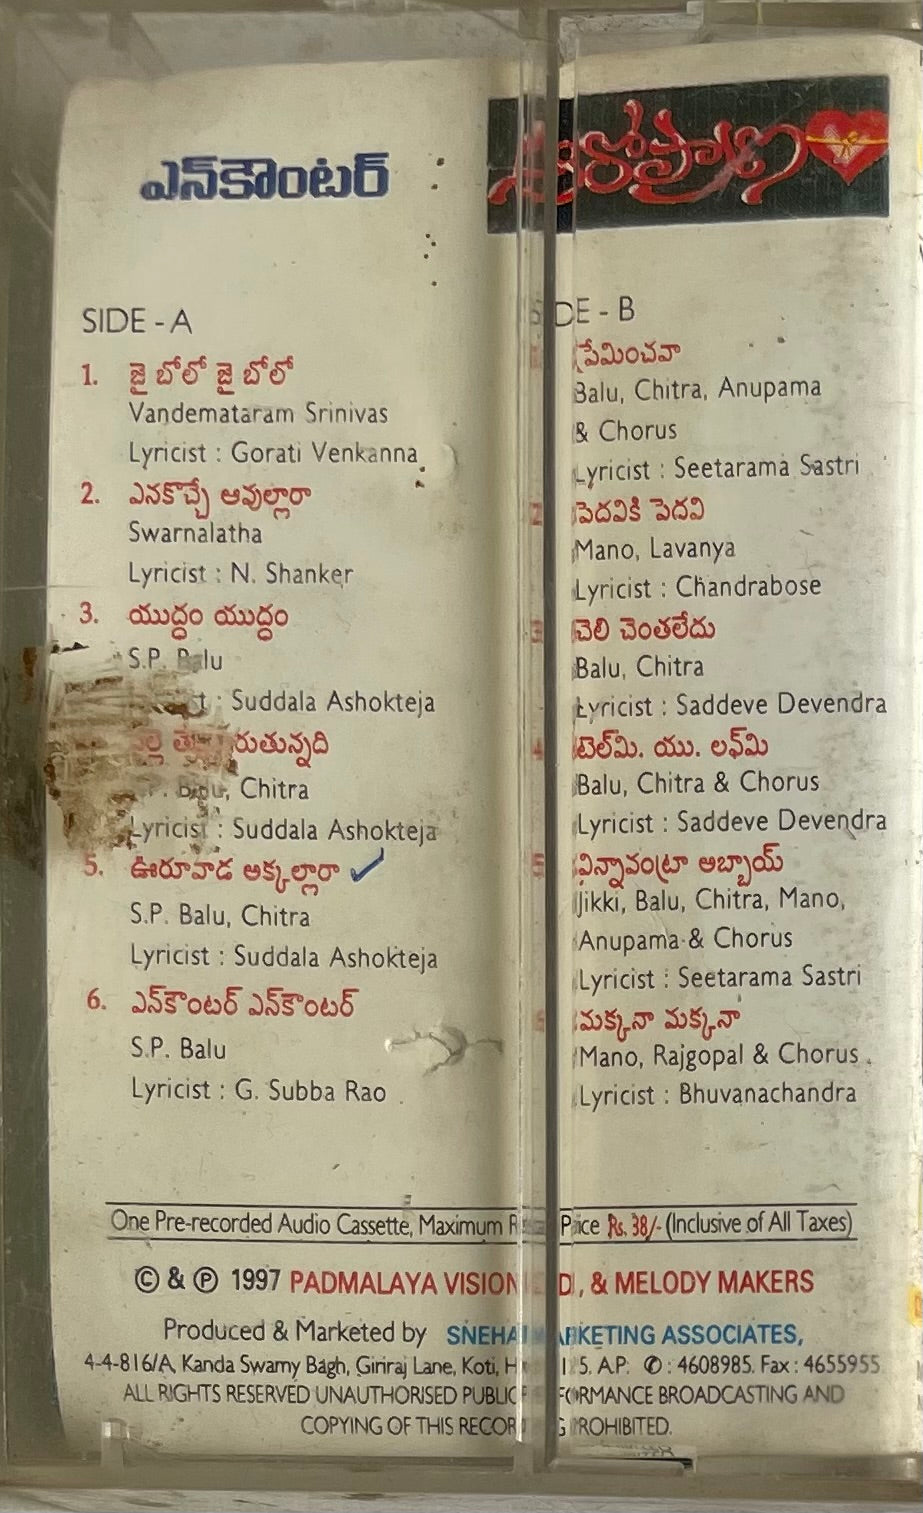 ఎన్‌కౌంటర్
SIDE - A
1. జై బోలో జై బోలో
Vandemataram Srinivas
Lyricist : Gorati Venkanna
2. ఎనకొచ్చే ఆవుల్లారా
Swarnalatha
Lyricist : N. Shanker
3. యుద్ధం యుద్ధం
S.P. Balu
: Suddala Ashokteja
Chitra
Lyricist : Suddala Ashokteja
5. ఊరూవాడ అక్కల్లారా
S.P. Balu, Chitra
Lyricist : Suddala Ashokteja
6. ఎన్‌కౌంటర్ ఎన్‌కౌంటర్
S.P. Balu
Lyricist : G. Subba Rao
SIDE - B
1. ప్రేమించవా
Balu, Chitra, Anupama
& Chorus
Lyricist : Seetarama Sastri
2. పెదవికి పెదవి
Mano, Lavanya
Lyricist : Chandrabose
3. చెలి చెంతలేదు
Balu, Chitra
Lyricist : Saddeve Devendra
4. టెల్‌మి. యు. లవ్‌మి
Balu, Chitra & Chorus
Lyricist : Saddeve Devendra
5. విన్నావంట్రా అబ్బాయ్
Jikki, Balu, Chitra, Mano,
Anupama & Chorus
Lyricist : Seetarama Sastri
6. మక్కనా మక్కనా
Mano, Rajgopal & Chorus
Lyricist : Bhuvanachandra
One Pre-recorded Audio Cassette, Maximum Retail Price Rs. 38/- (Inclusive of All Taxes)
© & ℗ 1997 PADMALAYA VISION , & MELODY MAKERS
Produced & Marketed by SNEHA MARKETING ASSOCIATES,
4-4-816/A, Kanda Swamy Bagh, Giriraj Lane, Koti, A.P. ✆ : 4608985. Fax : 4655955
ALL RIGHTS RESERVED UNAUTHORISED PUBLIC PERFORMANCE BROADCASTING AND
COPYING OF THIS RECORDING PROHIBITED.